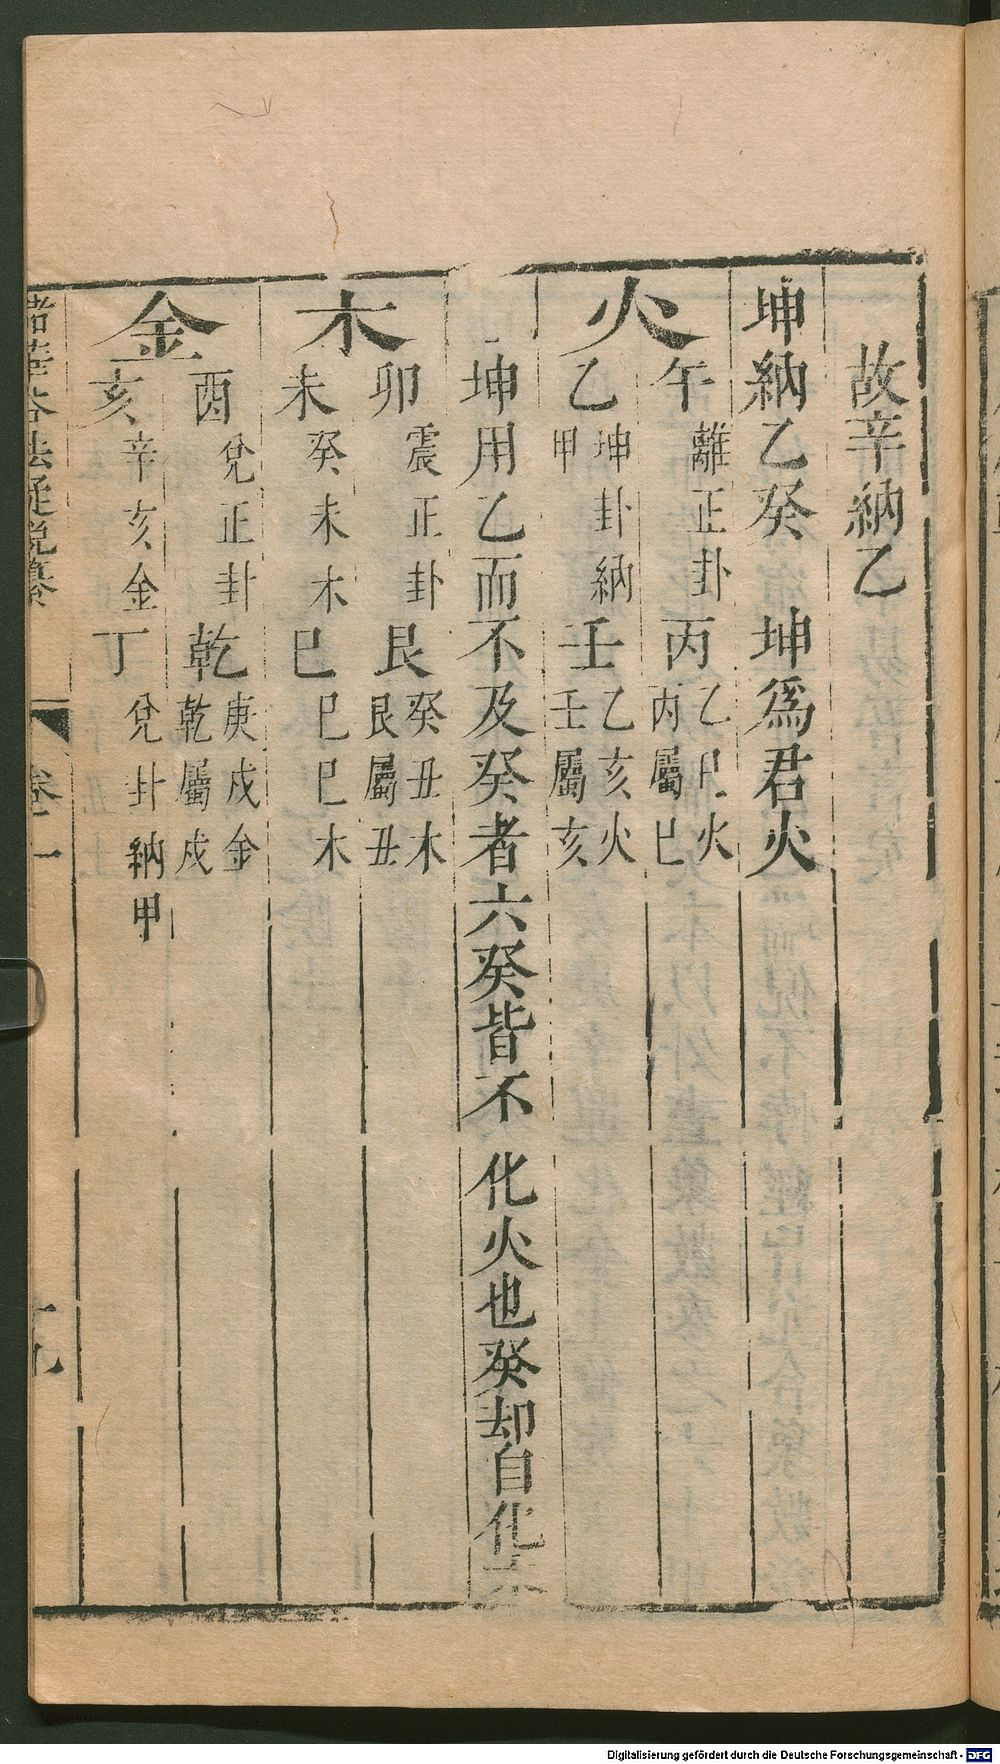 故辛納乙
坤納乙癸　坤爲君火
火
午離正卦丙乙巳火丙屬巳
乙坤卦納甲壬乙亥火壬屬亥
坤用乙而不及癸者六癸皆不化火也癸却自化木
木
卯震正卦艮癸丑木艮屬丑
未癸未木巳巳巳木
金
酉兌正卦乾庚戌金乾屬戌
亥辛亥金丁兌卦納甲
卷一
十九
Digitalisierung gefördert durch die Deutsche Forschungsgemeinschaft - DFG